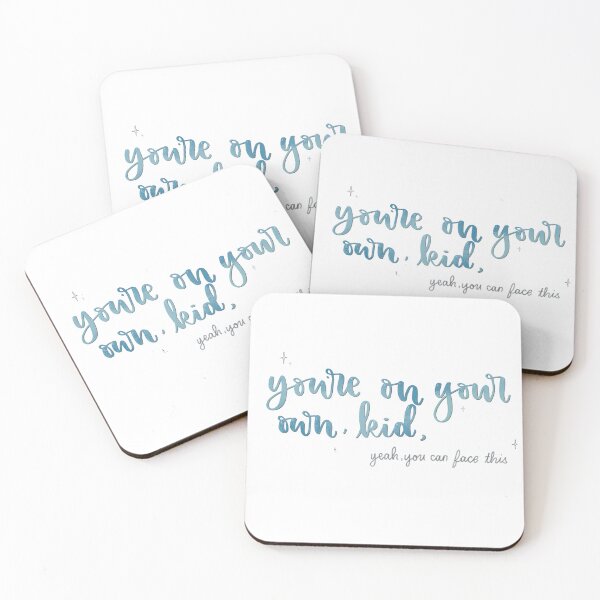 you're on your
own, kid,
can
you're on your
own, kid,
yeah, you can face this
you're on your
own, kid,
yeah, you
you're on your
own, kid,
yeah, you can face this